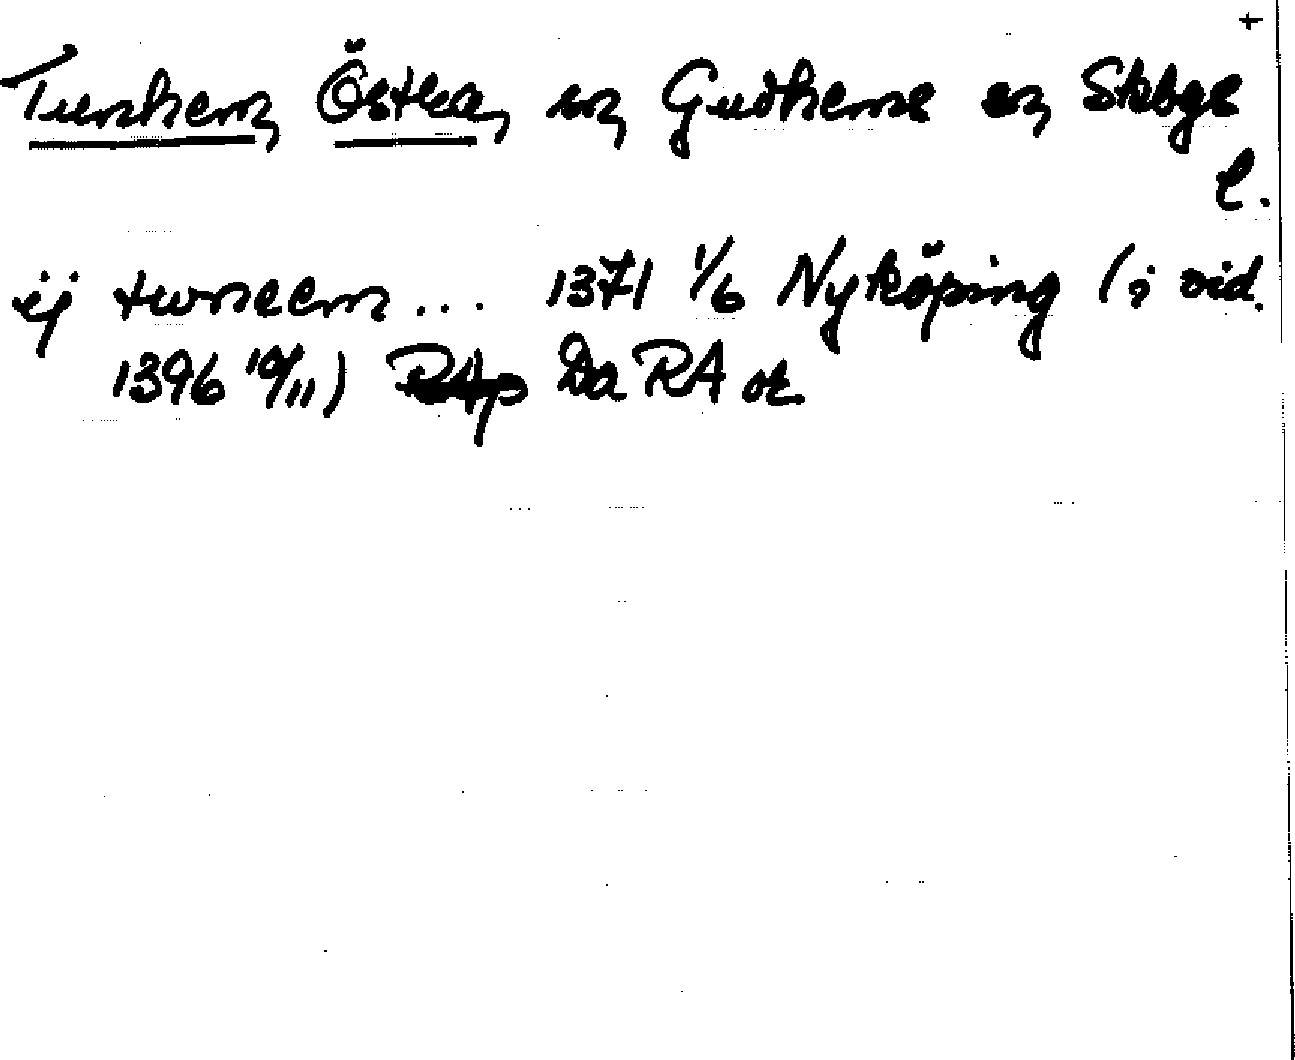 +
Tunhem, Östra, sn, Gudhems hd, Skbgs
l.
ij twneem... 1371 1/6 Nyköping (i vid.
1396 10/11) RAp Da RA or.